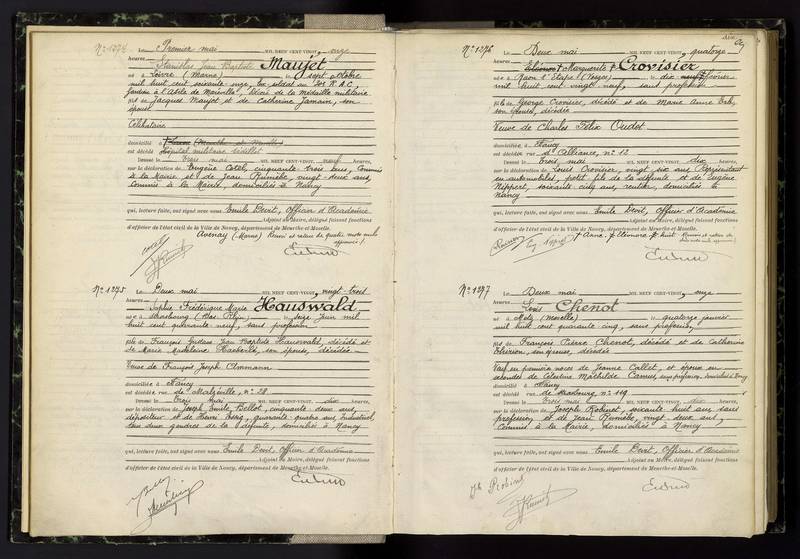 N° 1274 Le Premier mai MIL NEUF CENT-VINGT, onze
heures
Stanislas Jean Baptiste Maujet
né à Loivre (Marne) le sept octobre
mil huit cent soixante onze, ex soldat au R.A.C.,
à l'Asile de Maréville, titulaire de la médaille militaire
fils de Jacques Maujet et de Catherine Jamain, son
épouse
Célibataire
domicilié à (Meurthe et Moselle)
est décédé hôpital militaire Sédillot
Dressé le trois mai MIL NEUF CENT-VINGT, neuf heures,
sur la déclaration de Eugène Cotel, cinquante trois ans, Commis
à la Mairie et de Jean Rumière, vingt deux ans,
Commis à la Mairie, domiciliés à Nancy
qui, lecture faite, ont signé avec nous Emile Devit, Officier d'Académie
Adjoint au Maire, délégué faisant fonctions
d'officier de l'état civil de la Ville de Nancy, département de Meurthe-et-Moselle.
Avenay (Marne) Renvoi et rature de quatre mots nuls
approuvés
N° 1275 Le Deux mai MIL NEUF CENT-VINGT, vingt trois
heures
Sophie Frédérique Marie Hauswald
née à Strasbourg (Bas Rhin) le seize juin mil
huit cent quarante neuf, sans profession
fille de François Gustave Jean Baptiste Hauswald, décédé et
de Marie Madeleine Haeberlé, son épouse, décédée
Veuve de François Joseph Ammann
domiciliée à Nancy
est décédée rue de Malzéville, n° 28
Dressé le trois mai MIL NEUF CENT-VINGT, dix heures,
sur la déclaration de Joseph Emile Bellot, cinquante deux ans,
et de Henri Berg, quarante quatre ans, Industriel,
tous deux gendres de la défunte, domiciliés à Nancy
qui, lecture faite, ont signé avec nous Emile Devit, Officier d'Académie
Adjoint au Maire, délégué faisant fonctions
d'officier de l'état civil de la Ville de Nancy, département de Meurthe-et-Moselle.
N° 1276 Le Deux mai MIL NEUF CENT-VINGT, quatorze
heures
Eléonore Marguerite Crovisier
née à Raon l'Etape (Vosges) le dix février
mil huit cent vingt neuf, sans profession
fille de George Crovisier, décédé et de Marie Anne Erb,
son épouse, décédée
Veuve de Charles Félix Oudot
domiciliée à Nancy
est décédée rue d'Alliance, n° 12
Dressé le trois mai MIL NEUF CENT-VINGT, dix heures,
sur la déclaration de Louis Crovisier, vingt six ans Représentant
en automobiles, petit fils de la défunte et de Eugène
Nippert, soixante cinq ans, rentier, domiciliés à
Nancy
qui, lecture faite, ont signé avec nous Emile Devit, Officier d'Académie
Adjoint au Maire, délégué faisant fonctions
d'officier de l'état civil de la Ville de Nancy, département de Meurthe-et-Moselle.
Anne Eléonore huit Renvois et rature de
mots nuls approuvés
N° 1277 Le Deux mai MIL NEUF CENT-VINGT, onze
heures
Louis Chenot
né à Metz (Moselle) le quatorze janvier
mil huit cent quarante cinq, sans profession,
fils de François Pierre Chenot, décédé et de Catherine
Thirion, son épouse, décédée
Veuf en premières noces de Jeanne Callet, et époux en
secondes de Célestine Mathilde Camus, sans profession, domiciliée à Nancy
domicilié à Nancy
est décédé rue de Strasbourg, n° 119
Dressé le trois mai MIL NEUF CENT-VINGT, dix heures,
sur la déclaration de Joseph Robinet, soixante huit ans, sans
profession, et de Jean Rumière, vingt deux ans,
Commis à la Mairie, domiciliés à Nancy
qui, lecture faite, ont signé avec nous Emile Devit, Officier d'Académie
Adjoint au Maire, délégué faisant fonctions
d'officier de l'état civil de la Ville de Nancy, département de Meurthe-et-Moselle.